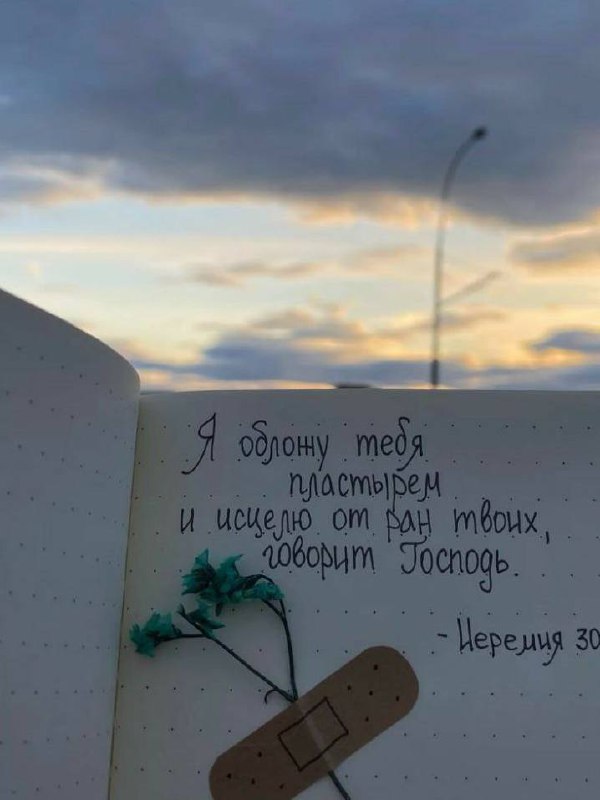 Я обложу тебя
пластырем
и исцелю от ран твоих,
говорит Господь.
- Иеремия 30